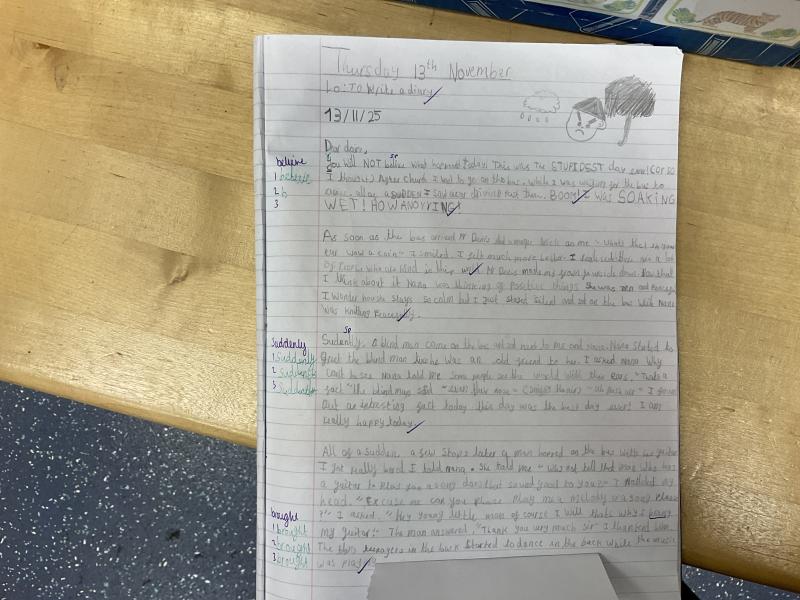 Thursday 13th November
Lo: To write a diary
13/11/25
Dear diary,
believe
sp
You will NOT believe what happened today! This was the STUPIDEST day ever! (or so
1 believe
I thought) After church I had to go on the bus. While I was waiting for the bus to
2 b
come, all of a SUDDEN I saw a driving past then. BOOM! I was SOAKING
3
WET! HOW ANOYYING!
As soon as the bus arrived Mr Denis did a magic trick on me
ear was a coin" I smiled. I felt much more better. I
of People who are kind in this Mr Denis made my frown upside down. Now that
I think about it Nana was thinking of Positive things. She was
I wonder how she stays so calm but I just stayed silent and sat on the bus while Nana
was knitting Peacefully.
sp
Suddenly
Sudently, a blind man came on the bus and sat next to me and nana. Nana started to
1 Suddenly
greet the blind man like he was an old friend to her. I asked nana why
2 suddenly
can't he see Nana told me some people see the world with their ears. "Thats a
3 Suddenly
fact" the blind man said
out an intresting fact today this day was the best day ever! I am
really happy today.
All of a sudden, a few stops later a man hopped on the bus with his guitar
I got really bored I told nana. She told me "Why not tell that man who has
a guitar to Play you a song does that sound good to you?" I nodded my
head. "Excuse me can you please Play me a melody or a song Please
brought
?" I asked. "Hey young little man of course I will thats why I
1 brought
my guitar!" The man answered. "Thank you very much sir" I thanked him.
2 brought
The in the back started to dance in the back while the music
3 brought
was